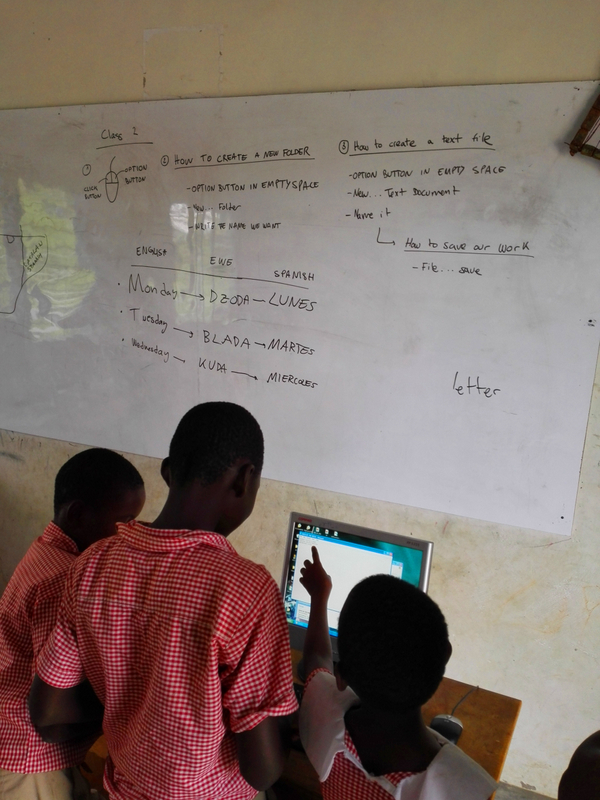 Class 2
①
CLICK BUTTON
OPTION BUTTON
② HOW TO CREATE A NEW FOLDER
- OPTION BUTTON IN EMPTY SPACE
- New... Folder
- WRITE THE NAME WE WANT
③ How to create a text file
- OPTION BUTTON IN EMPTY SPACE
- New... Text Document
- Name it
How to save our work
- File... save
ENGLISH EWE SPANISH
· Monday → DZODA → LUNES
· Tuesday → BLADA → MARTES
· Wednesday → KUDA → MIERCOLES
letter